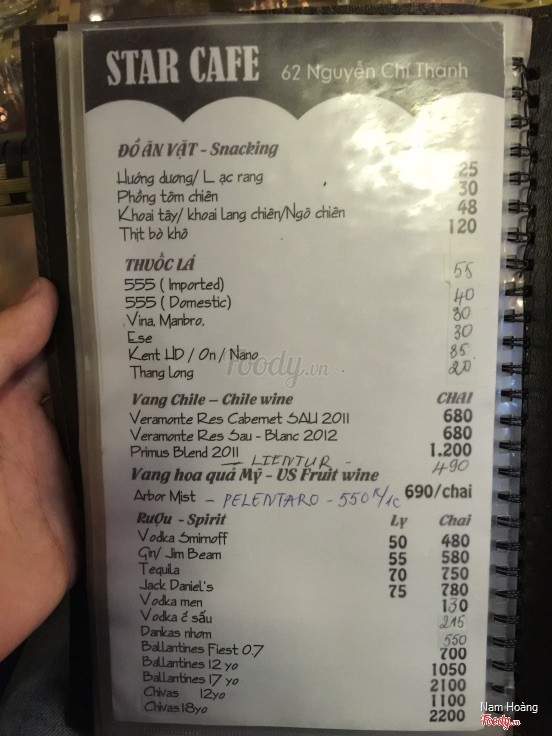 STAR CAFE 62 Nguyễn Chí Thanh
ĐỒ ĂN VẶT - Snacking
Hướng dương/ Lạc rang 25
Phồng tôm chiên 30
Khoai tây/ khoai lang chiên/Ngô chiên 48
Thịt bò khô 120
THUỐC LÁ
555 ( Imported) 55
555 ( Domestic) 40
Vina, Manbro, 30
Ese 30
Kent HD / On / Nano 35
Thang Long 20
Foody.vn
Vang Chile – Chile wine CHAI
Veramonte Res Cabernet SAU 2011 680
Veramonte Res Sau - Blanc 2012 680
Primus Blend 2011 1.200
– LIENTUR - 490
Vang hoa quả Mỹ - US Fruit wine
Arbor Mist – PELENTARO - 550K/1C 690/chai
RưỢu - Spirit Ly Chai
Vodka Smirnoff 50 480
Gin/ Jim Beam 55 580
Tequila 70 750
Jack Daniel's 75 780
Vodka men 130
Vodka cá sấu 215
Dankas nhơm 550
Ballantines Fiest 0.7 700
Ballantines 12 yo 1050
Ballantines 17 yo 2100
Chivas 12yo 1100
Chivas 18yo 2200
Nam Hoàng
Foody.vn